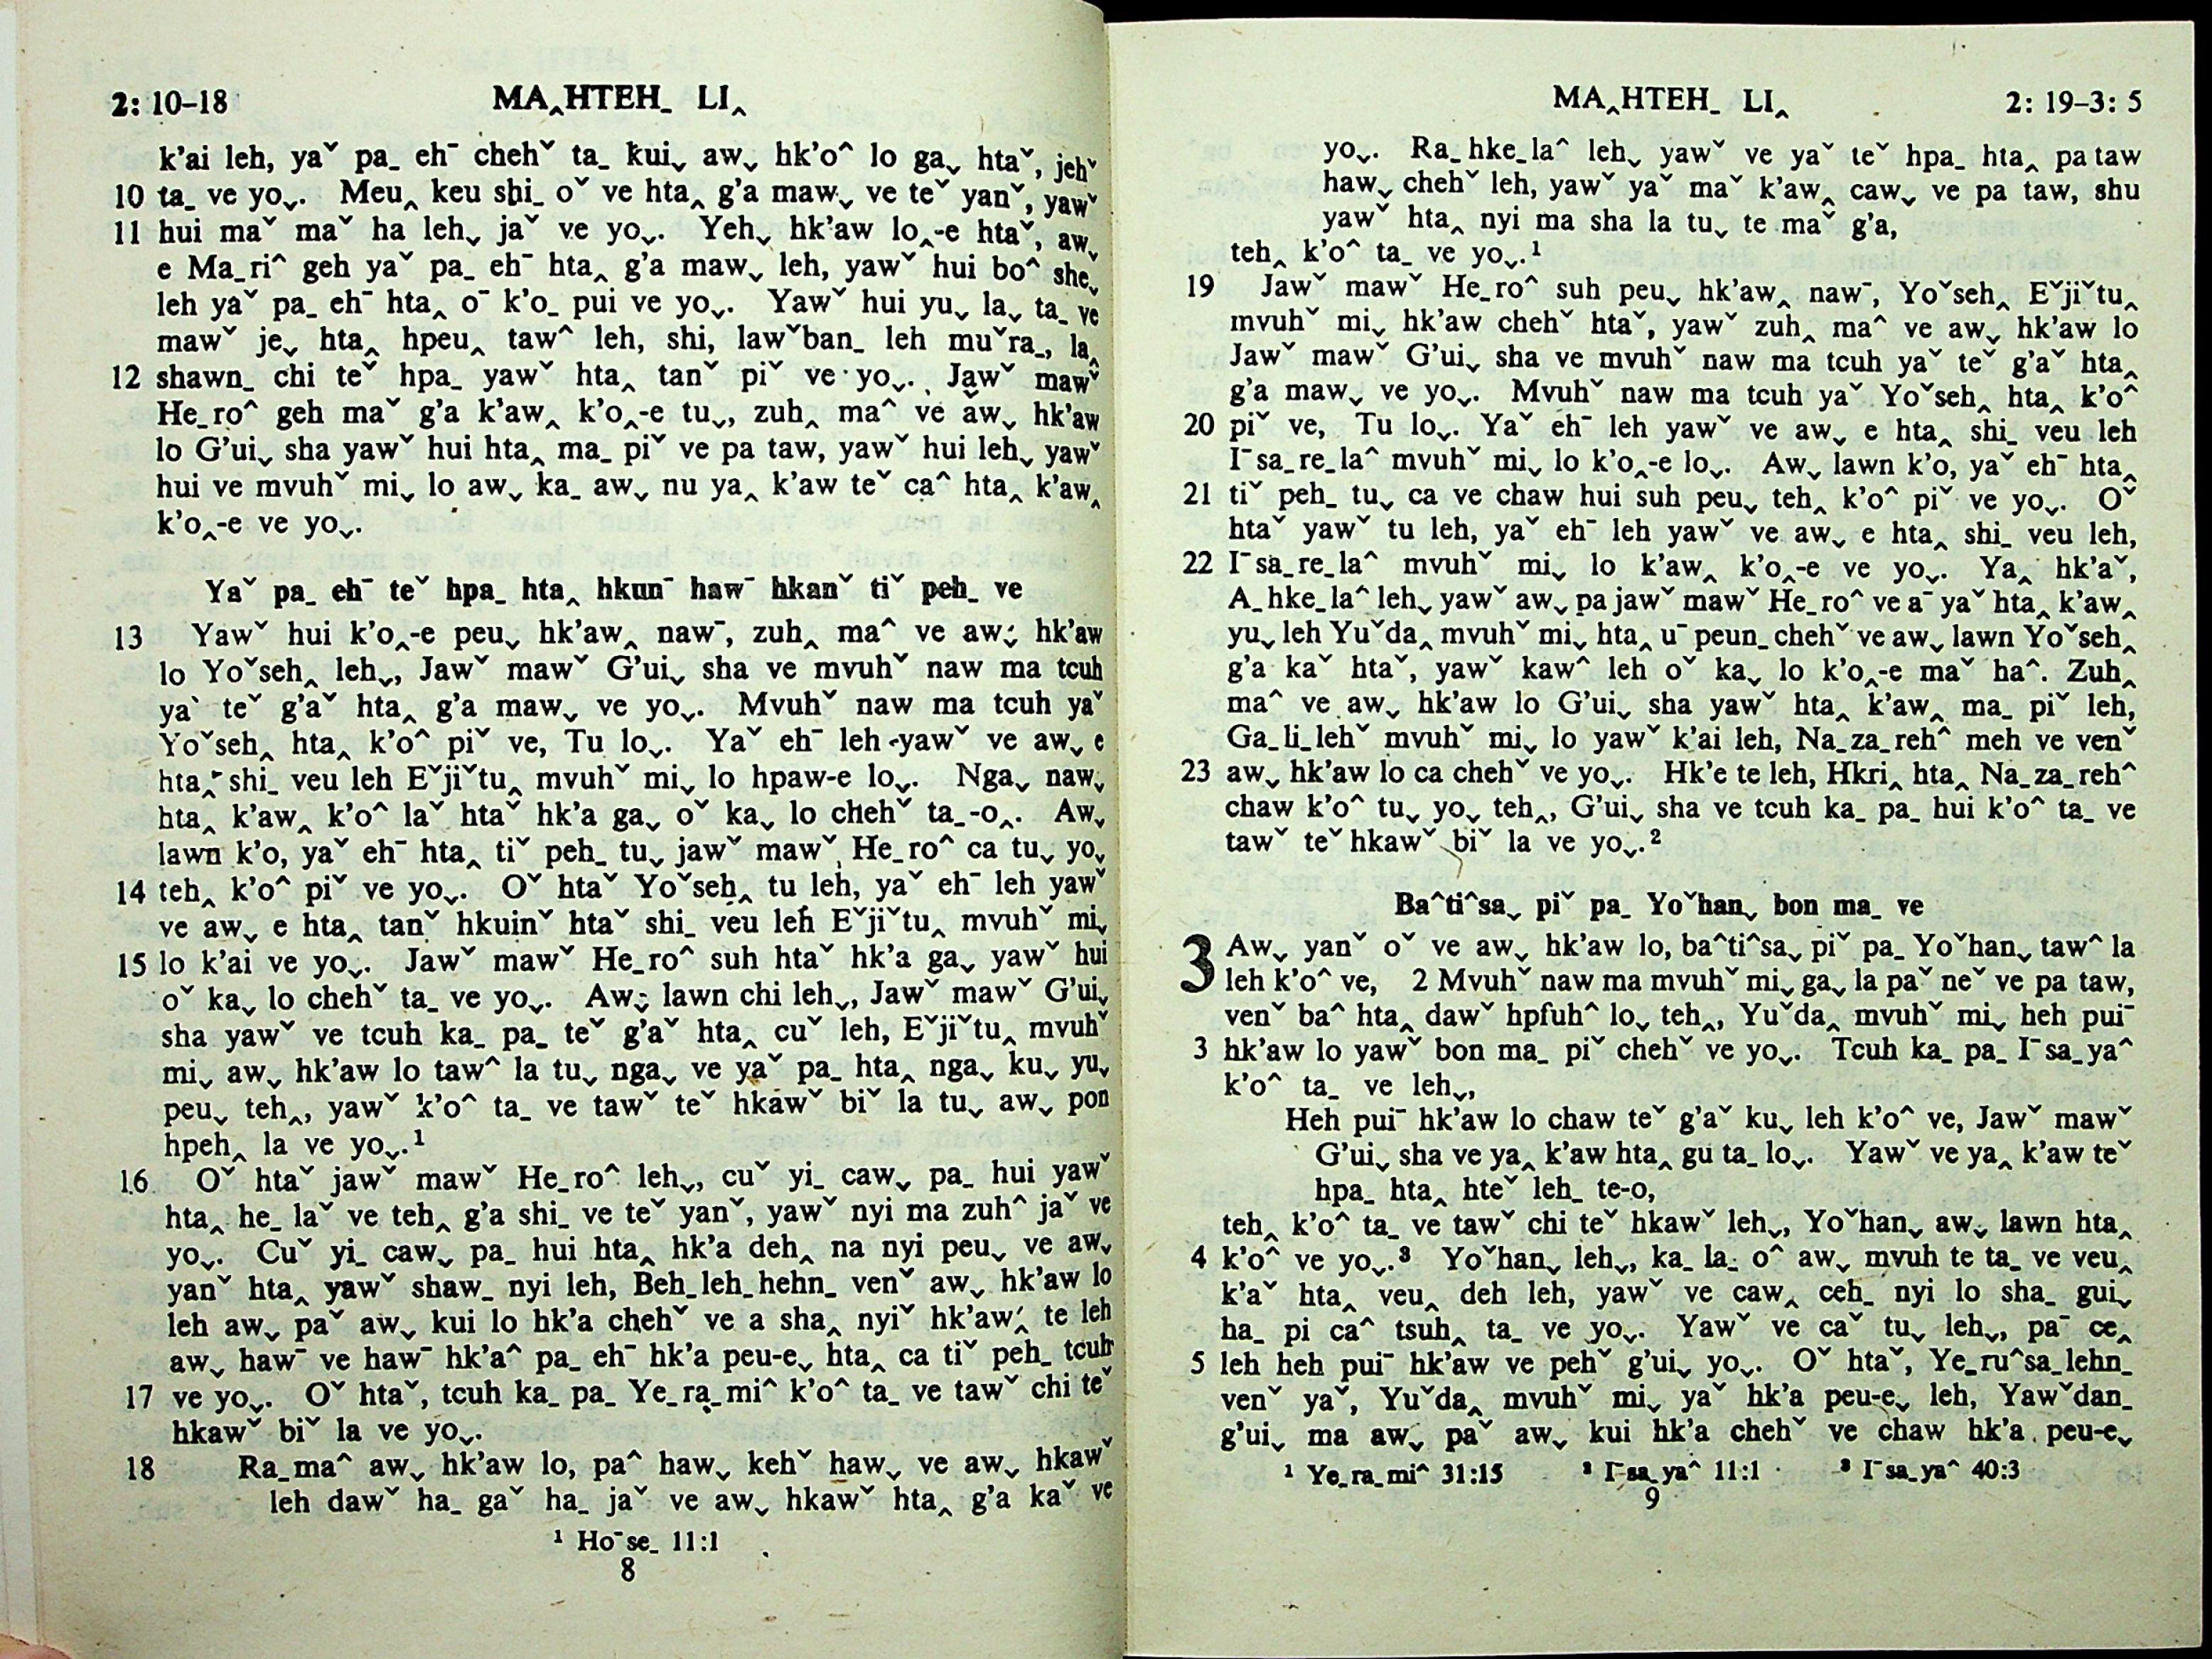 2: 10–18 MA‸HTEH_ LI‸
k'ai leh, yaˇ pa_ ehˉ chehˇ ta_ kuiˬ awˬ hk'o^ lo gaˬ htaˇ, jehˇ
10 ta_ ve yoˬ. Meu‸ keu shi_ oˇ ve hta‸ g'a mawˬ ve teˇ yanˇ, yawˇ
11 hui maˇ maˇ ha lehˬ jaˇ ve yoˬ. Yehˬ hk'aw lo‸-e htaˇ, awˬ
e Ma_ri^ geh yaˇ pa_ ehˉ hta‸ g'a mawˬ leh, yawˇ hui bo^ sheˬ
leh yaˇ pa_ ehˉ hta‸ oˉ k'o_ pui ve yoˬ. Yawˇ hui yuˬ laˬ ta_ ve
mawˇ jeˬ hta‸ hpeu‸ taw^ leh, shi, lawˇban_ leh muˇra_, la‸
12 shawn_ chi teˇ hpa_ yawˇ hta‸ tanˇ piˇ ve yoˬ. Jawˇ mawˇ
He_ro^ geh maˇ g'a k'aw‸ k'o‸-e tuˬ, zuh‸ ma^ ve awˬ hk'aw
lo G'uiˬ sha yawˇ hui hta‸ ma_ piˇ ve pa taw, yawˇ hui lehˬ yawˇ
hui ve mvuhˇ miˬ lo awˬ ka_ awˬ nu ya‸ k'aw teˇ ca^ hta‸ k'aw‸
k'o‸-e ve yoˬ.
Yaˇ pa_ ehˉ teˇ hpa_ hta‸ hkunˉ hawˉ hkanˇ tiˇ peh_ ve
13 Yawˇ hui k'o‸-e peuˬ hk'aw‸ nawˉ, zuh‸ ma^ ve awˬ hk'aw
lo Yoˇseh‸ lehˬ, Jawˇ mawˇ G'uiˬ sha ve mvuhˇ naw ma tcuh
yaˋ teˇ g'aˇ hta‸ g'a mawˬ ve yoˬ. Mvuhˇ naw ma tcuh yaˇ
Yoˇseh‸ hta‸ k'o^ piˇ ve, Tu loˬ. Yaˇ ehˉ leh yawˇ ve awˬ e
hta‸ shi_ veu leh Eˇjiˇtu‸ mvuhˇ miˬ lo hpaw-e loˬ. Ngaˬ nawˬ
hta‸ k'aw‸ k'o^ laˇ htaˇ hk'a gaˬ oˇ kaˬ lo chehˇ ta_-o‸. Awˬ
lawn k'o, yaˇ ehˉ hta‸ tiˇ peh_ tuˬ jawˇ mawˇ He_ro^ ca tuˬ yoˬ
14 teh‸ k'o^ piˇ ve yoˬ. Oˇ htaˇ Yoˇseh‸ tu leh, yaˇ ehˉ leh yawˇ
ve awˬ e hta‸ tanˇ hkuinˇ htaˇ shi_ veu leh Eˇjiˇtu‸ mvuhˇ miˬ
15 lo k'ai ve yoˬ. Jawˇ mawˇ He_ro^ suh htaˇ hk'a gaˬ yawˇ hui
oˇ kaˬ lo chehˇ ta_ ve yoˬ. Awˬ lawn chi lehˬ, Jawˇ mawˇ G'uiˬ
sha yawˇ ve tcuh ka_ pa_ teˇ g'aˇ hta‸ cuˇ leh, Eˇjiˇtu‸ mvuhˇ
miˬ awˬ hk'aw lo taw^ la tuˬ ngaˬ ve yaˇ pa_ hta‸ ngaˬ kuˬ yuˬ
peuˬ teh‸, yawˇ k'o^ ta_ ve tawˇ teˇ hkawˇ biˇ la tuˬ awˬ pon
hpeh‸ la ve yoˬ.¹
16 Oˇ htaˇ jawˇ mawˇ He_ro^ lehˬ, cuˇ yi_ cawˬ pa_ hui yawˇ
hta‸ he_ laˇ ve teh‸ g'a shi_ ve teˇ yanˇ, yawˇ nyi ma zuh^ jaˇ ve
yoˬ. Cuˇ yi_ cawˬ pa_ hui hta‸ hk'a deh‸ na nyi peuˬ ve awˬ
yanˇ hta‸ yawˇ shaw_ nyi leh, Beh_leh_hehn_ venˇ awˬ hk'aw lo
leh awˬ paˇ awˬ kui lo hk'a chehˇ ve a sha‸ nyiˇ hk'aw‸ te leh
awˬ hawˉ ve hawˉ hk'a^ pa_ ehˉ hk'a peu-eˬ hta‸ ca tiˇ peh_ tcuh
17 ve yoˬ. Oˇ htaˇ, tcuh ka_ pa_ Ye_ra_mi^ k'o^ ta_ ve tawˇ chi teˇ
hkawˇ biˇ la ve yoˬ.
18 Ra_ma^ awˬ hk'aw lo, pa^ hawˬ kehˇ hawˬ ve awˬ hkawˇ
leh dawˇ ha_ gaˇ ha_ jaˇ ve awˬ hkawˇ hta‸ g'a kaˇ ve
¹ Hoˉse_ 11:1
8
MA‸HTEH_ LI‸ 2: 19–3: 5
yoˬ. Ra_hke_la^ lehˬ yawˇ ve yaˇ teˇ hpa_ hta‸ pa taw
hawˬ chehˇ leh, yawˇ yaˇ maˇ k'aw‸ cawˬ ve pa taw, shu
yawˇ hta‸ nyi ma sha la tuˬ te maˇ g'a,
teh‸ k'o^ ta_ ve yoˬ.¹
19 Jawˇ mawˇ He_ro^ suh peuˬ hk'aw‸ nawˉ, Yoˇseh‸ Eˇjiˇtu‸
mvuhˇ miˬ hk'aw chehˇ htaˇ, yawˇ zuh‸ ma^ ve awˬ hk'aw lo
Jawˇ mawˇ G'uiˬ sha ve mvuhˇ naw ma tcuh yaˇ teˇ g'aˇ hta‸
g'a mawˬ ve yoˬ. Mvuhˇ naw ma tcuh yaˇ Yoˇseh‸ hta‸ k'o^
20 piˇ ve, Tu loˬ. Yaˇ ehˉ leh yawˇ ve awˬ e hta‸ shi_ veu leh
Iˉsa_re_la^ mvuhˇ miˬ lo k'o‸-e loˬ. Awˬ lawn k'o, yaˇ ehˉ hta‸
21 tiˇ peh_ tuˬ ca ve chaw hui suh peuˬ teh‸ k'o^ piˇ ve yoˬ. Oˇ
htaˇ yawˇ tu leh, yaˇ ehˉ leh yawˇ ve awˬ e hta‸ shi_ veu leh,
22 Iˉsa_re_la^ mvuhˇ miˬ lo k'aw‸ k'o‸-e ve yoˬ. Ya‸ hk'aˇ,
A_hke_la^ lehˬ yawˇ awˬ pa jawˇ mawˇ He_ro^ ve aˉ yaˇ hta‸ k'aw‸
yuˬ leh Yuˇda‸ mvuhˇ miˬ hta‸ uˉ peun_ chehˇ ve awˬ lawn Yoˇseh‸
g'a kaˇ htaˇ, yawˇ kaw^ leh oˇ kaˬ lo k'o‸-e maˇ ha^. Zuh‸
ma^ ve awˬ hk'aw lo G'uiˬ sha yawˇ hta‸ k'aw‸ ma_ piˇ leh,
Ga_li_lehˇ mvuhˇ miˬ lo yawˇ k'ai leh, Na_za_reh^ meh ve venˇ
23 awˬ hk'aw lo ca chehˇ ve yoˬ. Hk'e te leh, Hkri‸ hta‸ Na_za_reh^
chaw k'o^ tuˬ yoˬ teh‸, G'uiˬ sha ve tcuh ka_ pa_ hui k'o^ ta_ ve
tawˇ teˇ hkawˇ biˇ la ve yoˬ.²
Ba^ti^saˬ piˇ pa_ Yoˇhanˬ bon ma_ ve
3 Awˬ yanˇ oˇ ve awˬ hk'aw lo, ba^ti^saˬ piˇ pa_ Yoˇhanˬ taw^ la
leh k'o^ ve, 2 Mvuhˇ naw ma mvuhˇ miˬ gaˬ la paˇ neˇ ve pa taw,
venˇ ba^ hta‸ dawˇ hpfuh^ loˬ teh‸, Yuˇda‸ mvuhˇ miˬ heh puiˉ
3 hk'aw lo yawˇ bon ma_ piˇ chehˇ ve yoˬ. Tcuh ka_ pa_ Iˉsa_ya^
k'o^ ta_ ve lehˬ,
Heh puiˉ hk'aw lo chaw teˇ g'aˇ kuˬ leh k'o^ ve, Jawˇ mawˇ
G'uiˬ sha ve ya‸ k'aw hta‸ gu ta_ loˬ. Yawˇ ve ya‸ k'aw teˇ
hpa_ hta‸ hteˇ leh_ te-o,
teh‸ k'o^ ta_ ve tawˇ chi teˇ hkawˇ lehˬ, Yoˇhanˬ awˬ lawn hta‸
4 k'o^ ve yoˬ.³ Yoˇhanˬ lehˬ, ka_ la_ o^ awˬ mvuh te ta_ ve veu‸
k'aˇ hta‸ veu‸ deh leh, yawˇ ve caw‸ ceh_ nyi lo sha_ guiˬ
ha_ pi ca^ tsuh‸ ta_ ve yoˬ. Yawˇ ve caˇ tuˬ lehˬ, paˉ ce‸
5 leh heh puiˉ hk'aw ve pehˇ g'uiˬ yoˬ. Oˇ htaˇ, Ye_ru^sa_lehn_
venˇ yaˇ, Yuˇda‸ mvuhˇ miˬ yaˇ hk'a peu-eˬ leh, Yawˇdan_
g'uiˬ ma awˬ paˇ awˬ kui hk'a chehˇ ve chaw hk'a peu-eˬ
¹ Ye_ra_mi^ 31:15 ² Iˉsa_ya^ 11:1 ³ Iˉsa_ya^ 40:3
9